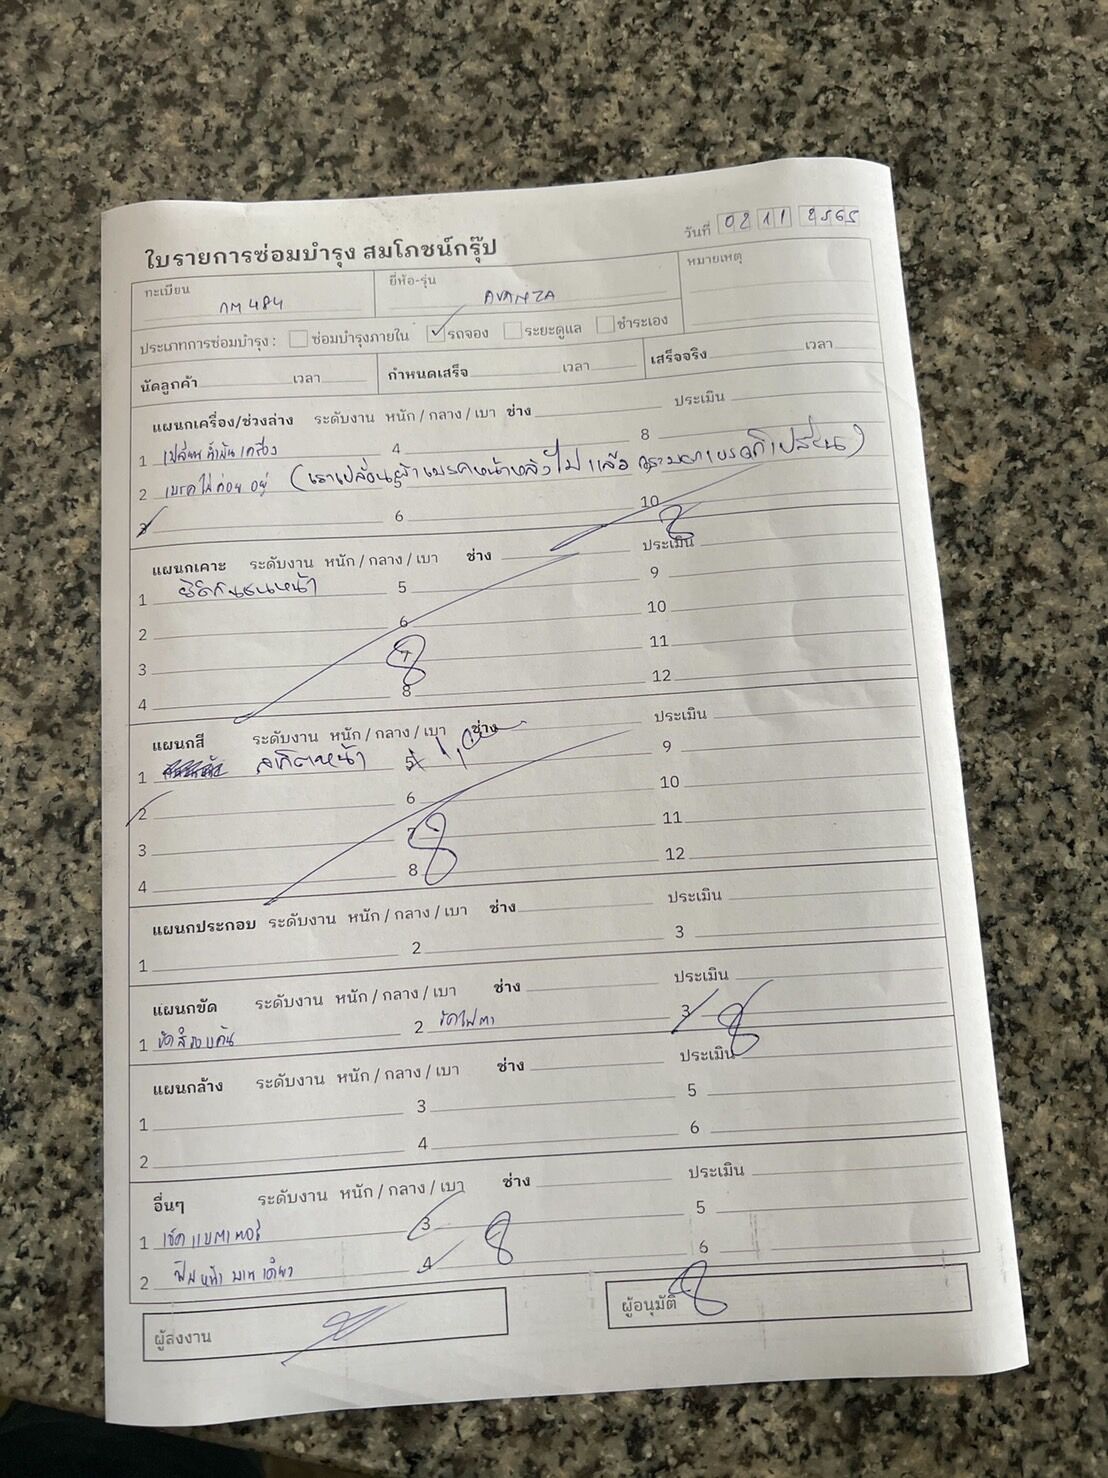 ใบรายการซ่อมบำรุง สมโภชน์กรุ๊ป
วันที่ 02 11 2565
ทะเบียน กM 484
ยี่ห้อ-รุ่น AVANZA
หมายเหตุ
ประเภทการซ่อมบำรุง : ซ่อมบำรุงภายใน ✓ รถจอง ระยะดูแล ชำระเอง
นัดลูกค้า เวลา กำหนดเสร็จ เวลา เสร็จจริง เวลา
แผนกเครื่อง/ช่วงล่าง ระดับงาน หนัก / กลาง / เบา ช่าง ประเมิน
1 เปลี่ยนน้ำมันเครื่อง 4 8
2 เบรคไม่ค่อยอยู่ (เราเปลี่ยนผ้าเบรคหน้าหลังไปแล้ว
3 6 10
แผนกเคาะ ระดับงาน หนัก / กลาง / เบา ช่าง ประเมิน
1 ยึดกันชนหน้า 5 9
2 6 10
3 7 11
4 8 12
แผนกสี ระดับงาน หนัก / กลาง / เบา ช่าง ประเมิน
1 สเกิตหน้า 5 9
2 6 10
3 7 11
4 8 12
แผนกประกอบ ระดับงาน หนัก / กลาง / เบา ช่าง ประเมิน
1 2 3
แผนกขัด ระดับงาน หนัก / กลาง / เบา ช่าง ประเมิน
1 ขัดสีรอบคัน 2 ขัดไฟตา 3
แผนกล้าง ระดับงาน หนัก / กลาง / เบา ช่าง ประเมิน
1 3 5
2 4 6
อื่นๆ ระดับงาน หนัก / กลาง / เบา ช่าง ประเมิน
1 เช็คแบตเตอรี่ 3 5
2 ฟิล์มหน้าบานเดียว 4 6
ผู้ส่งงาน
ผู้อนุมัติ